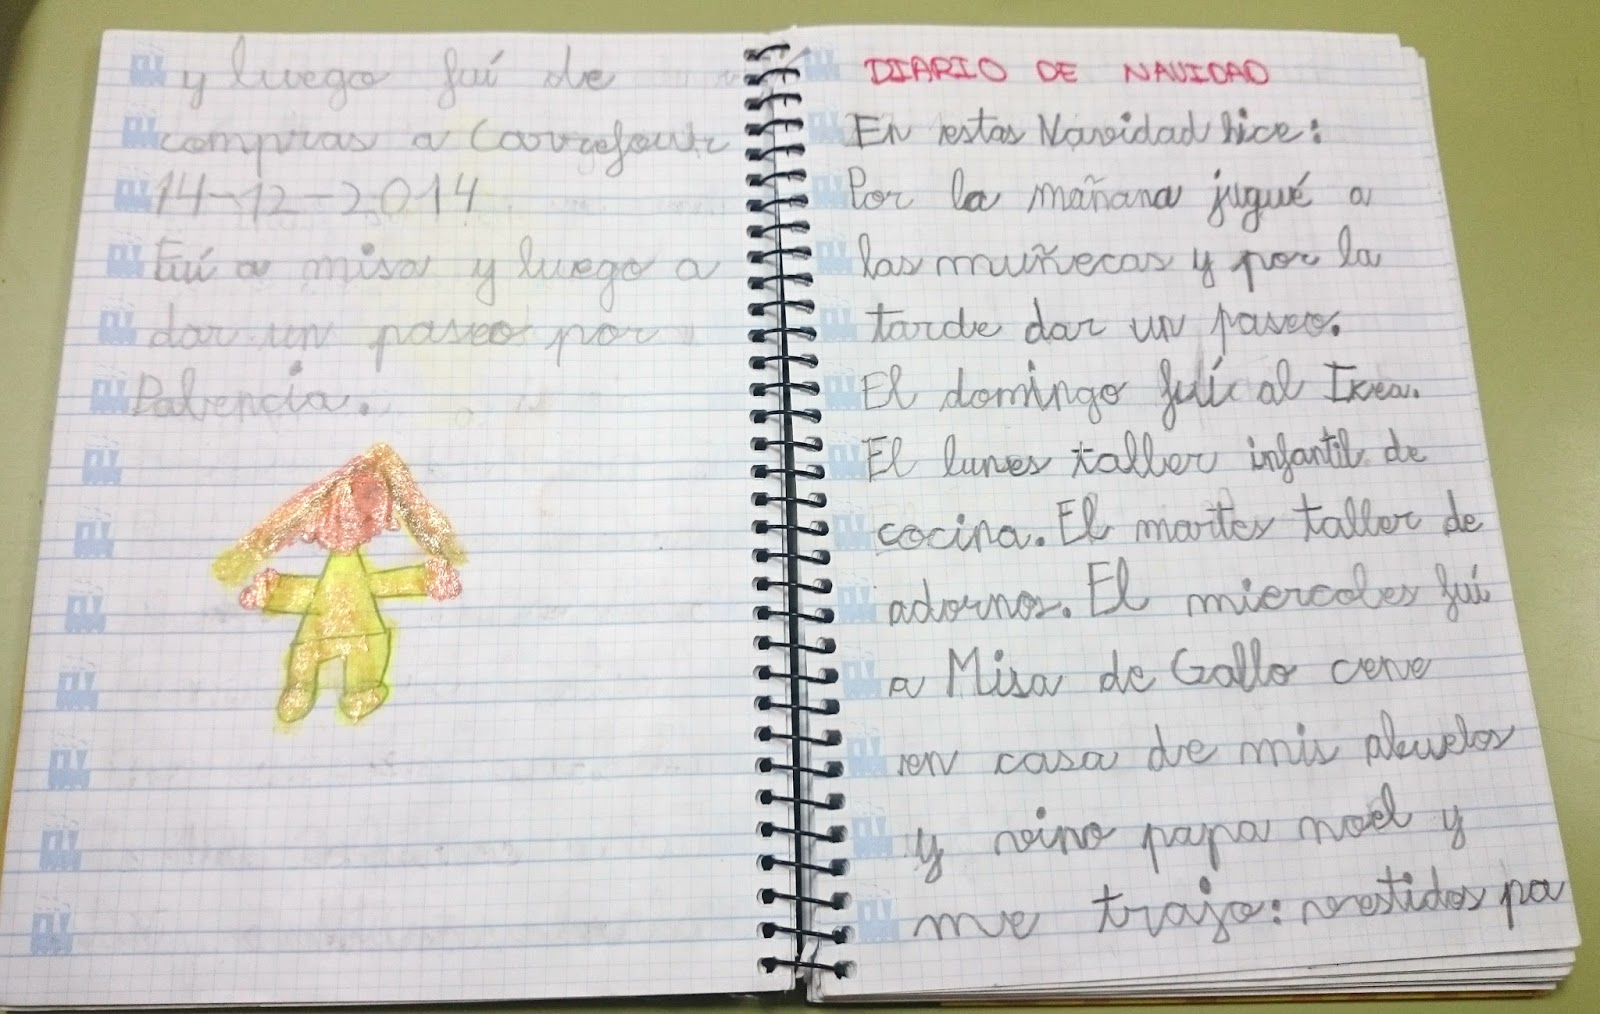 y luego fuí de
compras a Carrefour
14-12-2014
Fuí a misa y luego a
dar un paseo por
Palencia.
DIARIO DE NAVIDAD
En estas Navidad hice:
Por la mañana jugué a
las muñecas y por la
tarde dar un paseo.
El domingo fuí al Ikea.
El lunes taller infantil de
cocina. El martes taller de
adornos. El miercoles fuí
a Misa de Gallo cene
en casa de mis abuelos
y vino papa noel y
me trajo: vestidos pa